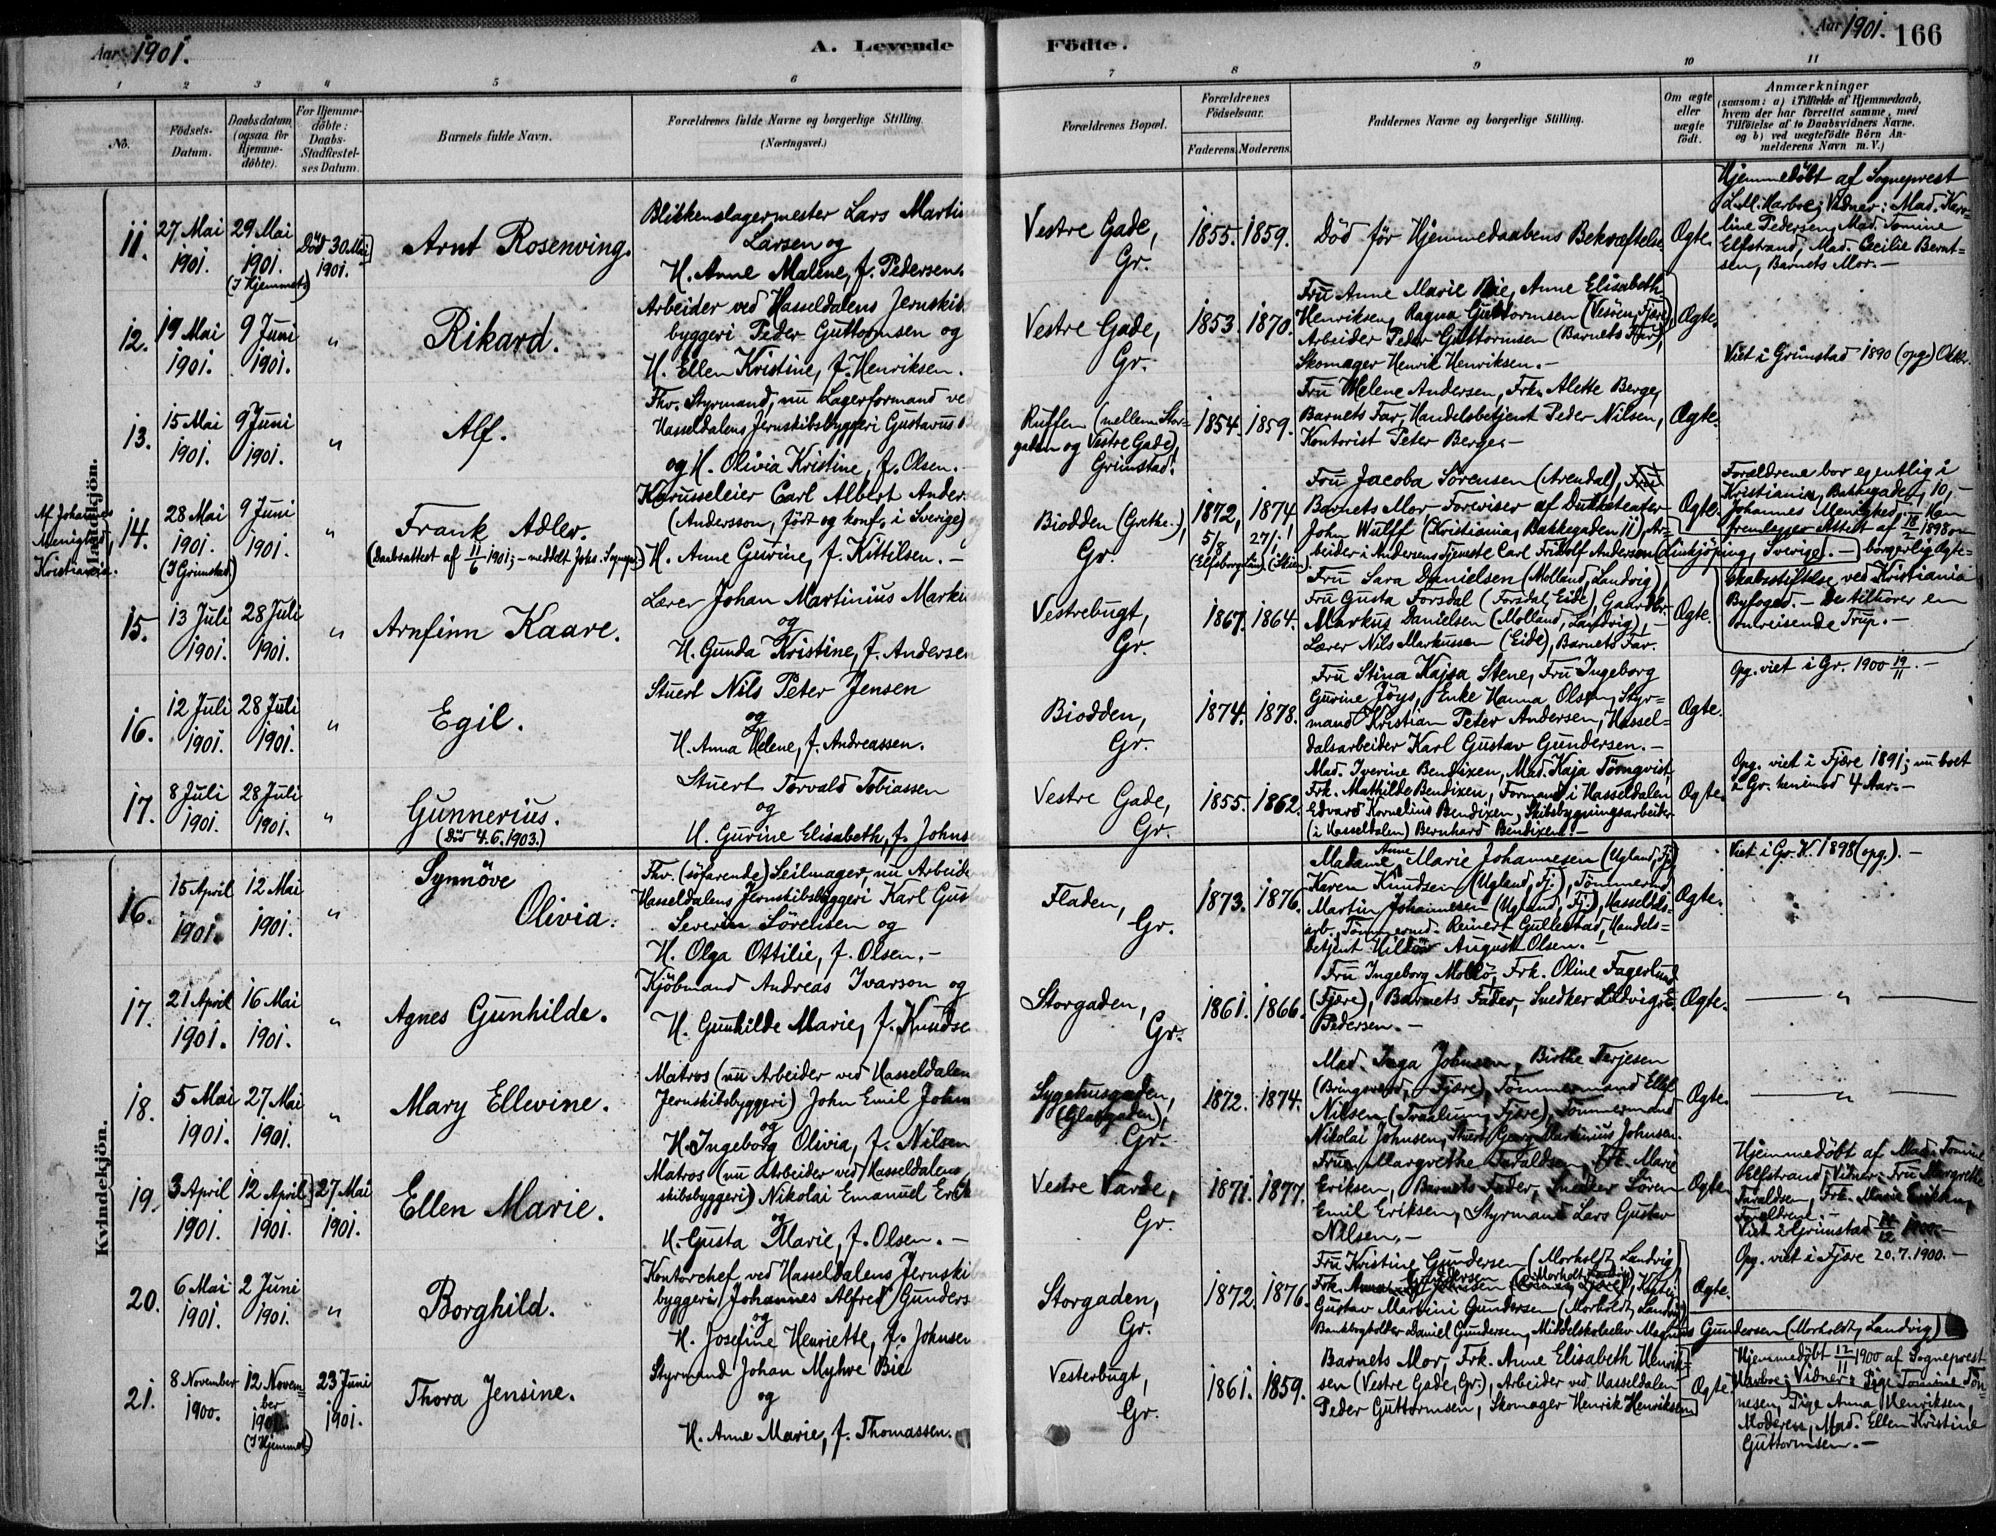 Aar 1901.
A. Levende Födte.
Aar 1901. 166
1 2 3 4 5 6 7 8 9 10 11
No.
Födsels-Datum.
Daabsdatum (ogsaa for Hjemme-döbte).
For Hjemme-döbte: Daabs-Stadfæstel-ses Datum.
Barnets fulde Navn.
Forældrenes fulde Navne og borgerlige Stilling.
(Næringsvei.)
Forældrenes Bopæl.
Forældrenes Födselsaar.
Faderens. Moderens.
Faddernes Navne og borgerlige Stilling.
Om ægte eller uægte födt.
Anmærkninger
(saasom: a) i Tilfælde af Hjemmedaab, hvem der har forrettet samme, med Tilföielse af to Daabsvidners Navne. og b) ved uægtefödte Börn An-melderens Navn m. V.)
Mandkjön.
11.
27 Mai 1901.
29 Mai 1901. (I Hjemmet)
Död 30 Mai 1901.
Arnt Rosenving.
Blikkenslagermester Lars Martin
Larsen og
H. Anne Malene, f. Pedersen.
Vestre Gade,
Gr.
1855. 1859.
Död för Hjemmedaabens Bekræftelse
Ægte.
Hjemmedöbt af Sogneprest
L. M. Harbre; Vidner: Mad. Karo-
line Pedersen, Mad. Tomine
Elfstrand, Mad. Cecilie Bernt-
sen, Barnets Mor. -
12.
19 Mai 1901.
9 Juni 1901.
"
Rikard.
Arbeider ved Hasseldalens Jernskibs
byggeri Peder Guttormsen og
H. Ellen Kristine, f. Henriksen.
Vestre Gade,
Gr.
1853. 1870.
Fru Anne Marie Bie, Anne Elisabeth
Henriksen, Ragna Guttormsen (Vesöen, Fjære),
Arbeider Peder Guttormsen (Barnets Far),
Skomager Henrik Henriksen. -
Ægte.
Viet i Grimstad 1890 (opg.) Oktbr.
13.
15 Mai 1901.
9 Juni 1901.
"
Alf.
Fhv. Styrmand, nu Lagerformand ved
Hasseldalens Jernskibsbyggeri Gustavus
og H. Olivia Kristine, f. Olsen. -
Ruffen (mellem Stor-
gaden og Vestre Gade),
Grimstad.
1854. 1859.
Fru Helene Andersen, Frk. Alette Berge,
Barnets Far, Handelsbetjent Peder Nilsen,
Kontorist Peter Berge. -
Ægte.
Af Johannes
Menighed,
Kristiania.
14.
28 Mai 1901. (I Grimstad)
9 Juni 1901.
"
Frank Adler.
(Daabsattest af 11/6 1901; - meddelt Johs. Sognepr.)
Karusseleier Carl Albert Anders
(Andersson, födt og konf. i Sverige) og
H. Anne Gurine, f. Kittilsen. -
Biodden (Grethe.),
Gr.
1872, 5/8 (Elfsborgslän).
1874, 27/1. (Skien).
Fru Jacoba Sörensen (Arendal),
Barnets Mor. Foreviser af Dukketeater
John Wulff (Kristiania, Bakkegaden 11), Ar-
beider i Andersens Tjeneste Carl Fridolf Andersson (Linkjöping, Sverige). -
Ægte.
Forældrene bor egentlig i
Kristiania, Bakkegaden 10, -
Johannes Menighed. - Han
fremlegger Attest af 18/2 1898 om
borgerlig Ægte-
skabsstiftelse ved Kristiania
Byfoged. - De tilhörer en
omreisende Trup. -
15.
13 Juli 1901.
28 Juli 1901.
"
Arnfinn Kaare.
Lærer Johan Martinius Markussen
og
H. Gunda Kristine, f. Andersen
Vestrebugt,
Gr.
1867. 1864.
Fru Sara Danielsen (Molland, Landvig),
Fru Gusta Forsdal (Forsdal, Eide), Gaardbr.
Markus Danielsen (Molland, Landvig), -
Lærer Nils Markussen (Eide), Barnets Far.
Ægte.
16.
12 Juli 1901.
28 Juli 1901.
"
Egil.
Stuert Nils Peter Jensen
og
H. Anna Helene, f. Andreassen.
Biodden,
Gr.
1874. 1878.
Fru Stina Kajsa Stene, Fru Ingeborg
Gurine Jöys, Enke Hanna Olsen, Styr-
mand Kristian Peter Andersen, Hassel-
dalsarbeider Karl Gustav Gundersen. -
Ægte.
Opg. viet i Gr. 1900 19/11. -
17.
8 Juli 1901.
28 Juli 1901.
"
Gunnerius.
(Död 4.6.1903.)
Stuert Torvald Tobiassen
og
H. Gurine Elisabeth, f. Johnsen
Vestre Gade,
Gr.
1855. 1862.
Mad. Iverine Bendixen, Mad. Kaja Törnqvist
Frk. Mathilde Bendixen, Formand i Hasseldalen
Edvard Kornelius Bendixen, Skibsbygningsarbeider
(i Hasseldalen) Bernhard Bendixen. -
Ægte.
Opg. viet i Fjære 1891; nu boet
i Gr. henimod 4 Aar. -
Kvindekjön.
16.
15 April 1901.
12 Mai 1901.
"
Synnöve
Olivia.
Fhv. (söfarende) Seilmager, nu Arbeide
Hasseldalens Jernskibsbyggeri Karl Gus
Severin Sörensen og
H. Olga Ottilie, f. Olsen. -
Fladen,
Gr.
1873. 1876.
Madame Anne Marie Johannesen (Ugland, Fj.)
Karen Knudsen (Ugland, Fj.), Tömmermd.
Martin Johannesen (Ugland, Fj.), Hasselds-
arb., Tömmermd. Reinert Gullestad, Handels-
betjent August Olsen. -
Ægte.
Viet i Gr. K. 1898 (opg.). -
17.
21 April 1901.
16 Mai 1901.
"
Agnes Gunhilde.
Kjöbmand Andreas Ivarson og
H. Gunhilde Marie, f. Knudse
Storgaden,
Gr.
1861. 1866.
Fru Ingeborg Mollö, Frk. Oline Fagerlund
(Fjære), Barnets Fader, Snedker Ludvig
Pedersen. -
Ægte.
"
18.
5 Mai 1901.
27 Mai 1901.
"
Mary Ellevine.
Matros (nu Arbeider ved Hasseldalen
Jernskibsbyggeri) John Emil John
og
H. Ingeborg Olivia, f. Nilsen
Sygehusgaden,
(Gladgaden),
Gr.
1872. 1874.
Mad. Inga Johnsen, Birthe Terjesen
(Bringsværd, Fjære), Tömmermand Ellef
Nilsen (Traalum, Fjære), Tömmermand
Nikolai Johnsen, Stuert Georg Martinius Johnsen.
Ægte.
"
19.
3 April 1901.
12 April 1901.
27 Mai 1901.
Ellen Marie.
Matros (nu Arbeider ved Hasseldalens
skibsbyggeri) Nikolai Emanuel Erik
og
H. Gusta Marie, f. Olsen. -
Vestre Varde,
Gr.
1871. 1877.
Fru Margrethe Taraldsen, Frk. Marie
Eriksen, Barnets Fader, Snedker Sören
Emil Eriksen, Styrmand Lars Gustav
Nilsen. -
Ægte.
Hjemmedöbt af Mad. Tomine
Elfstrand; Vidner: Fru Margrethe
Taraldsen, Frk. Marie Eriksen,
Forældrene. -
Viet i Grimstad 1900. -
20.
6 Mai 1901.
2 Juni 1901.
"
Borghild.
Kontorchef ved Hasseldalens Jernski
byggeri Johannes Alfred Gunders
og
H. Josefine Henriette, f. Johnsen
Storgaden,
Gr.
1872. 1876.
Fru Kristine Gundersen (Morholt, Landvig),
Frk. Gundersen (Morholt, Landvig), Kapt.
Gustav Martini Gundersen (Morholdt, Landvig),
Bankbogholder Daniel Gundersen, Middelskoleelev Magnus Gundersen (Morholdt, Landvig)
Ægte.
Opg. viet i Fjære 20.7.1900. -
21.
8 November 1900.
12 Novem-ber 1900 (I Hjemmet)
23 Juni 1901.
Thora Jensine.
Styrmand Johan Myhre Bie
og
H. Anne Marie, f. Thomassen.
Vesterbugt,
Gr.
1861. 1859.
Barnets Mor, Frk. Anne Elisabeth Henrik-
sen (Vestre Gade, Gr.), Arbeider ved Hasseldalen
Peder Guttormsen, Skomager Henrik Henriksen
Ægte.
Hjemmedöbt 12/11 1900 af Sogneprest
Harbre; Vidner: Pige Tomine Tön-
nesen, Pige Anna Henriksen,
Moderen, Mad. Ellen Kristine
Guttormsen. -